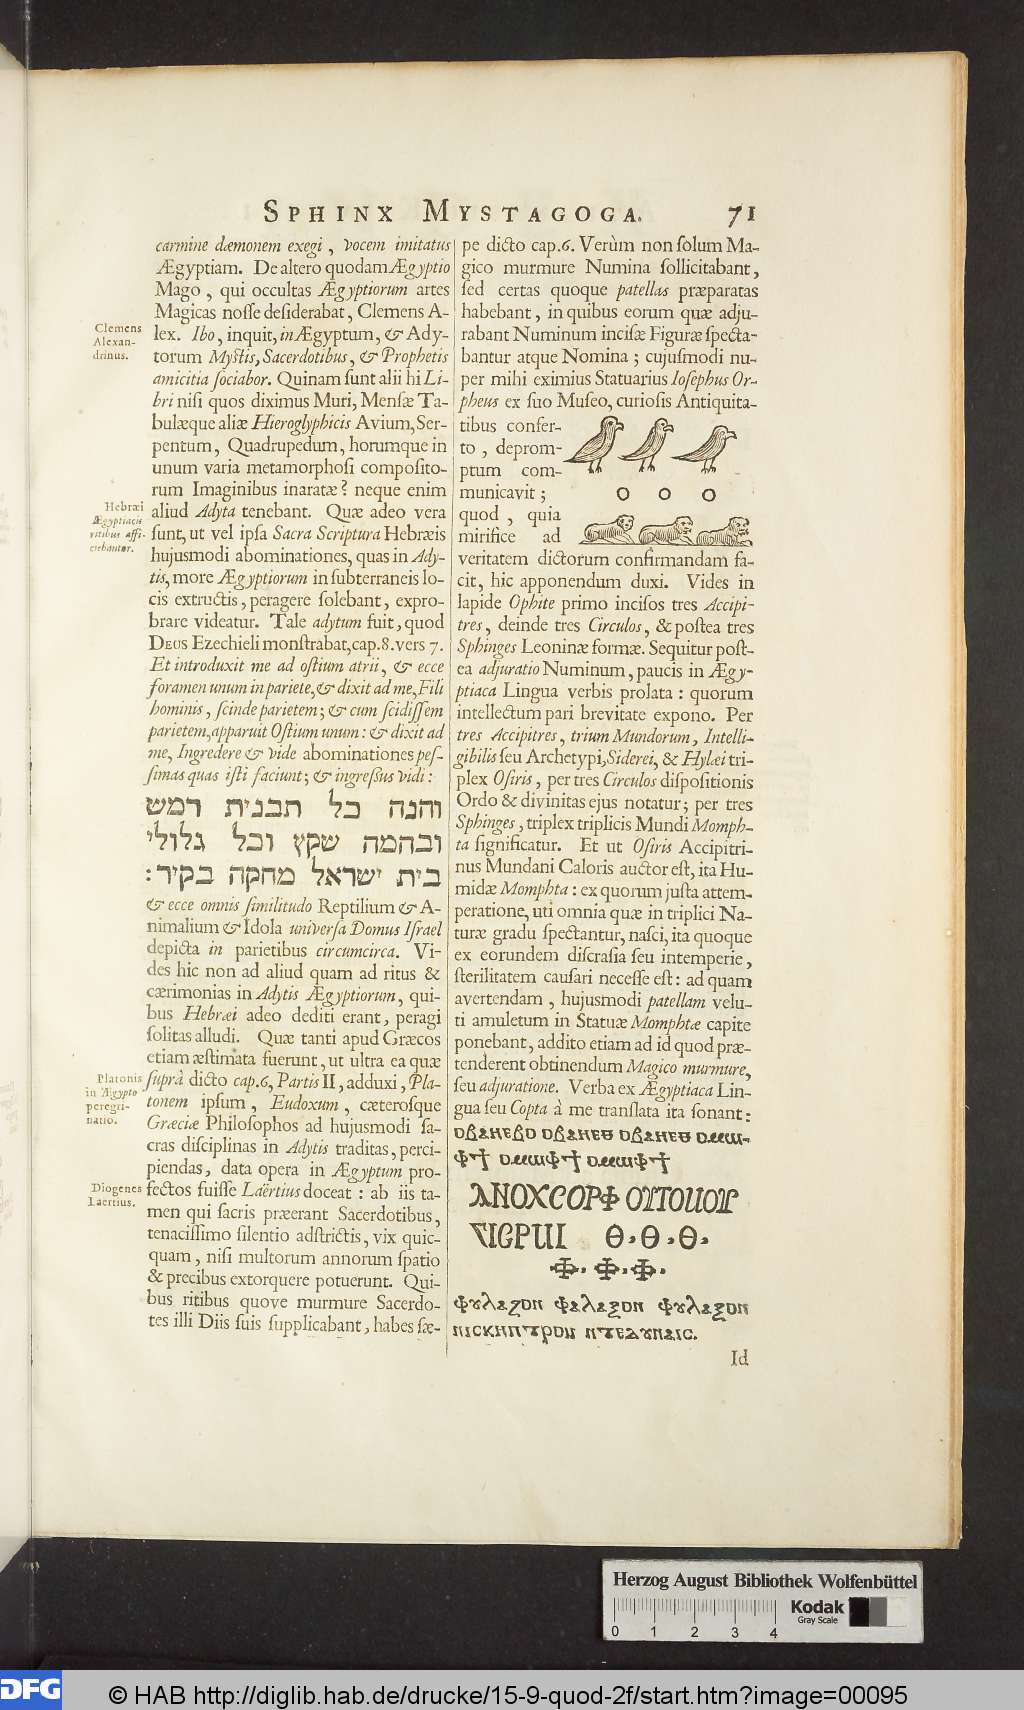 SPHINX MYSTAGOGA. 71
carmine dæmonem exegi, vocem imitatus
Ægyptiam. De altero quodam Ægyptio
Mago, qui occultas Ægyptiorum artes
Magicas nosse desiderabat, Clemens A-
lex. Ibo, inquit, in Ægyptum, & Ady-
torum Mystis, Sacerdotibus, & Prophetis
amicitia sociabor. Quinam sunt alii hi Li-
bri nisi quos diximus Muri, Mensæ Ta-
bulæque aliæ Hieroglyphicis Avium, Ser-
pentum, Quadrupedum, horumque in
unum varia metamorphosi composito-
rum Imaginibus inaratæ? neque enim
aliud Adyta tenebant. Quæ adeo vera
sunt, ut vel ipsa Sacra Scriptura Hebræis
hujusmodi abominationes, quas in Ady-
tis, more Ægyptiorum in subterraneis lo-
cis extructis, peragere solebant, expro-
brare videatur. Tale adytum fuit, quod
DEUS Ezechieli monstrabat, cap. 8. vers 7.
Et introduxit me ad ostium atrii, & ecce
foramen unum in pariete, & dixit ad me, Fili
hominis, scinde parietem; & cum scidissem
parietem, apparuit Ostium unum: & dixit ad
me, Ingredere & vide abominationes pes-
simas quas isti faciunt; & ingressus vidi:
והנה כל תבנית רמש
ובהמה שקץ וכל גלולי
בית ישראל מחקה בקיר:
& ecce omnis similitudo Reptilium & A-
nimalium & Idola universa Domus Israel
depicta in parietibus circumcirca. Vi-
des hic non ad aliud quam ad ritus &
cærimonias in Adytis Ægyptiorum, qui-
bus Hebræi adeo dediti erant, peragi
solitas alludi. Quæ tanti apud Græcos
etiam æstimata fuerunt, ut ultra ea quæ
suprà dicto cap. 6, Partis II, adduxi, Pla-
tonem ipsum, Eudoxum, cæterosque
Græciæ Philosophos ad hujusmodi sa-
cras disciplinas in Adytis traditas, perci-
piendas, data opera in Ægyptum pro-
fectos fuisse Laërtius doceat: ab iis ta-
men qui sacris præerant Sacerdotibus,
tenacissimo silentio adstrictis, vix quic-
quam, nisi multorum annorum spatio
& precibus extorquere potuerunt. Qui-
bus ritibus quove murmure Sacerdo-
tes illi Diis suis supplicabant, habes sæ-
Clemens
Alexan-
drinus.
Hebræi
Ægyptiacis
ritibus affi-
ciebantur.
Platonis
in Ægypto
peregri-
natio.
Diogenes
Laertius.
pe dicto cap. 6. Verùm non solum Ma-
gico murmure Numina sollicitabant,
sed certas quoque patellas præparatas
habebant, in quibus eorum quæ adju-
rabant Numinum incisæ Figuræ specta-
bantur atque Nomina; cujusmodi nu-
per mihi eximius Statuarius Iosephus Or-
pheus ex suo Museo, curiosis Antiquita-
tibus confer-
to, deprom-
ptum com-
municavit;
quod, quia
mirifice ad
veritatem dictorum confirmandam fa-
cit, hic apponendum duxi. Vides in
lapide Ophite primo incisos tres Accipi-
tres, deinde tres Circulos, & postea tres
Sphinges Leoninæ formæ. Sequitur post-
ea adjuratio Numinum, paucis in Ægy-
ptiaca Lingua verbis prolata: quorum
intellectum pari brevitate expono. Per
tres Accipitres, trium Mundorum, Intelli-
gibilis seu Archetypi, Siderei, & Hylæi tri-
plex Osiris, per tres Circulos dispositionis
Ordo & divinitas ejus notatur; per tres
Sphinges, triplex triplicis Mundi Momph-
ta significatur. Et ut Osiris Accipitri-
nus Mundani Caloris auctor est, ita Hu-
midæ Momphta: ex quorum justa attem-
peratione, uti omnia quæ in triplici Na-
turæ gradu spectantur, nasci, ita quoque
ex eorundem discrasia seu intemperie,
sterilitatem causari necesse est: ad quam
avertendam, hujusmodi patellam velu-
ti amuletum in Statuæ Momphtæ capite
ponebant, addito etiam ad id quod præ-
tenderent obtinendum Magico murmure,
seu adjuratione. Verba ex Ægyptiaca Lin-
gua seu Copta à me translata ita sonant:
Θ, Θ, Θ,
Id
Herzog August Bibliothek Wolfenbüttel
Kodak
Gray Scale
0 1 2 3 4
DFG
© HAB http://diglib.hab.de/drucke/15-9-quod-2f/start.htm?image=00095